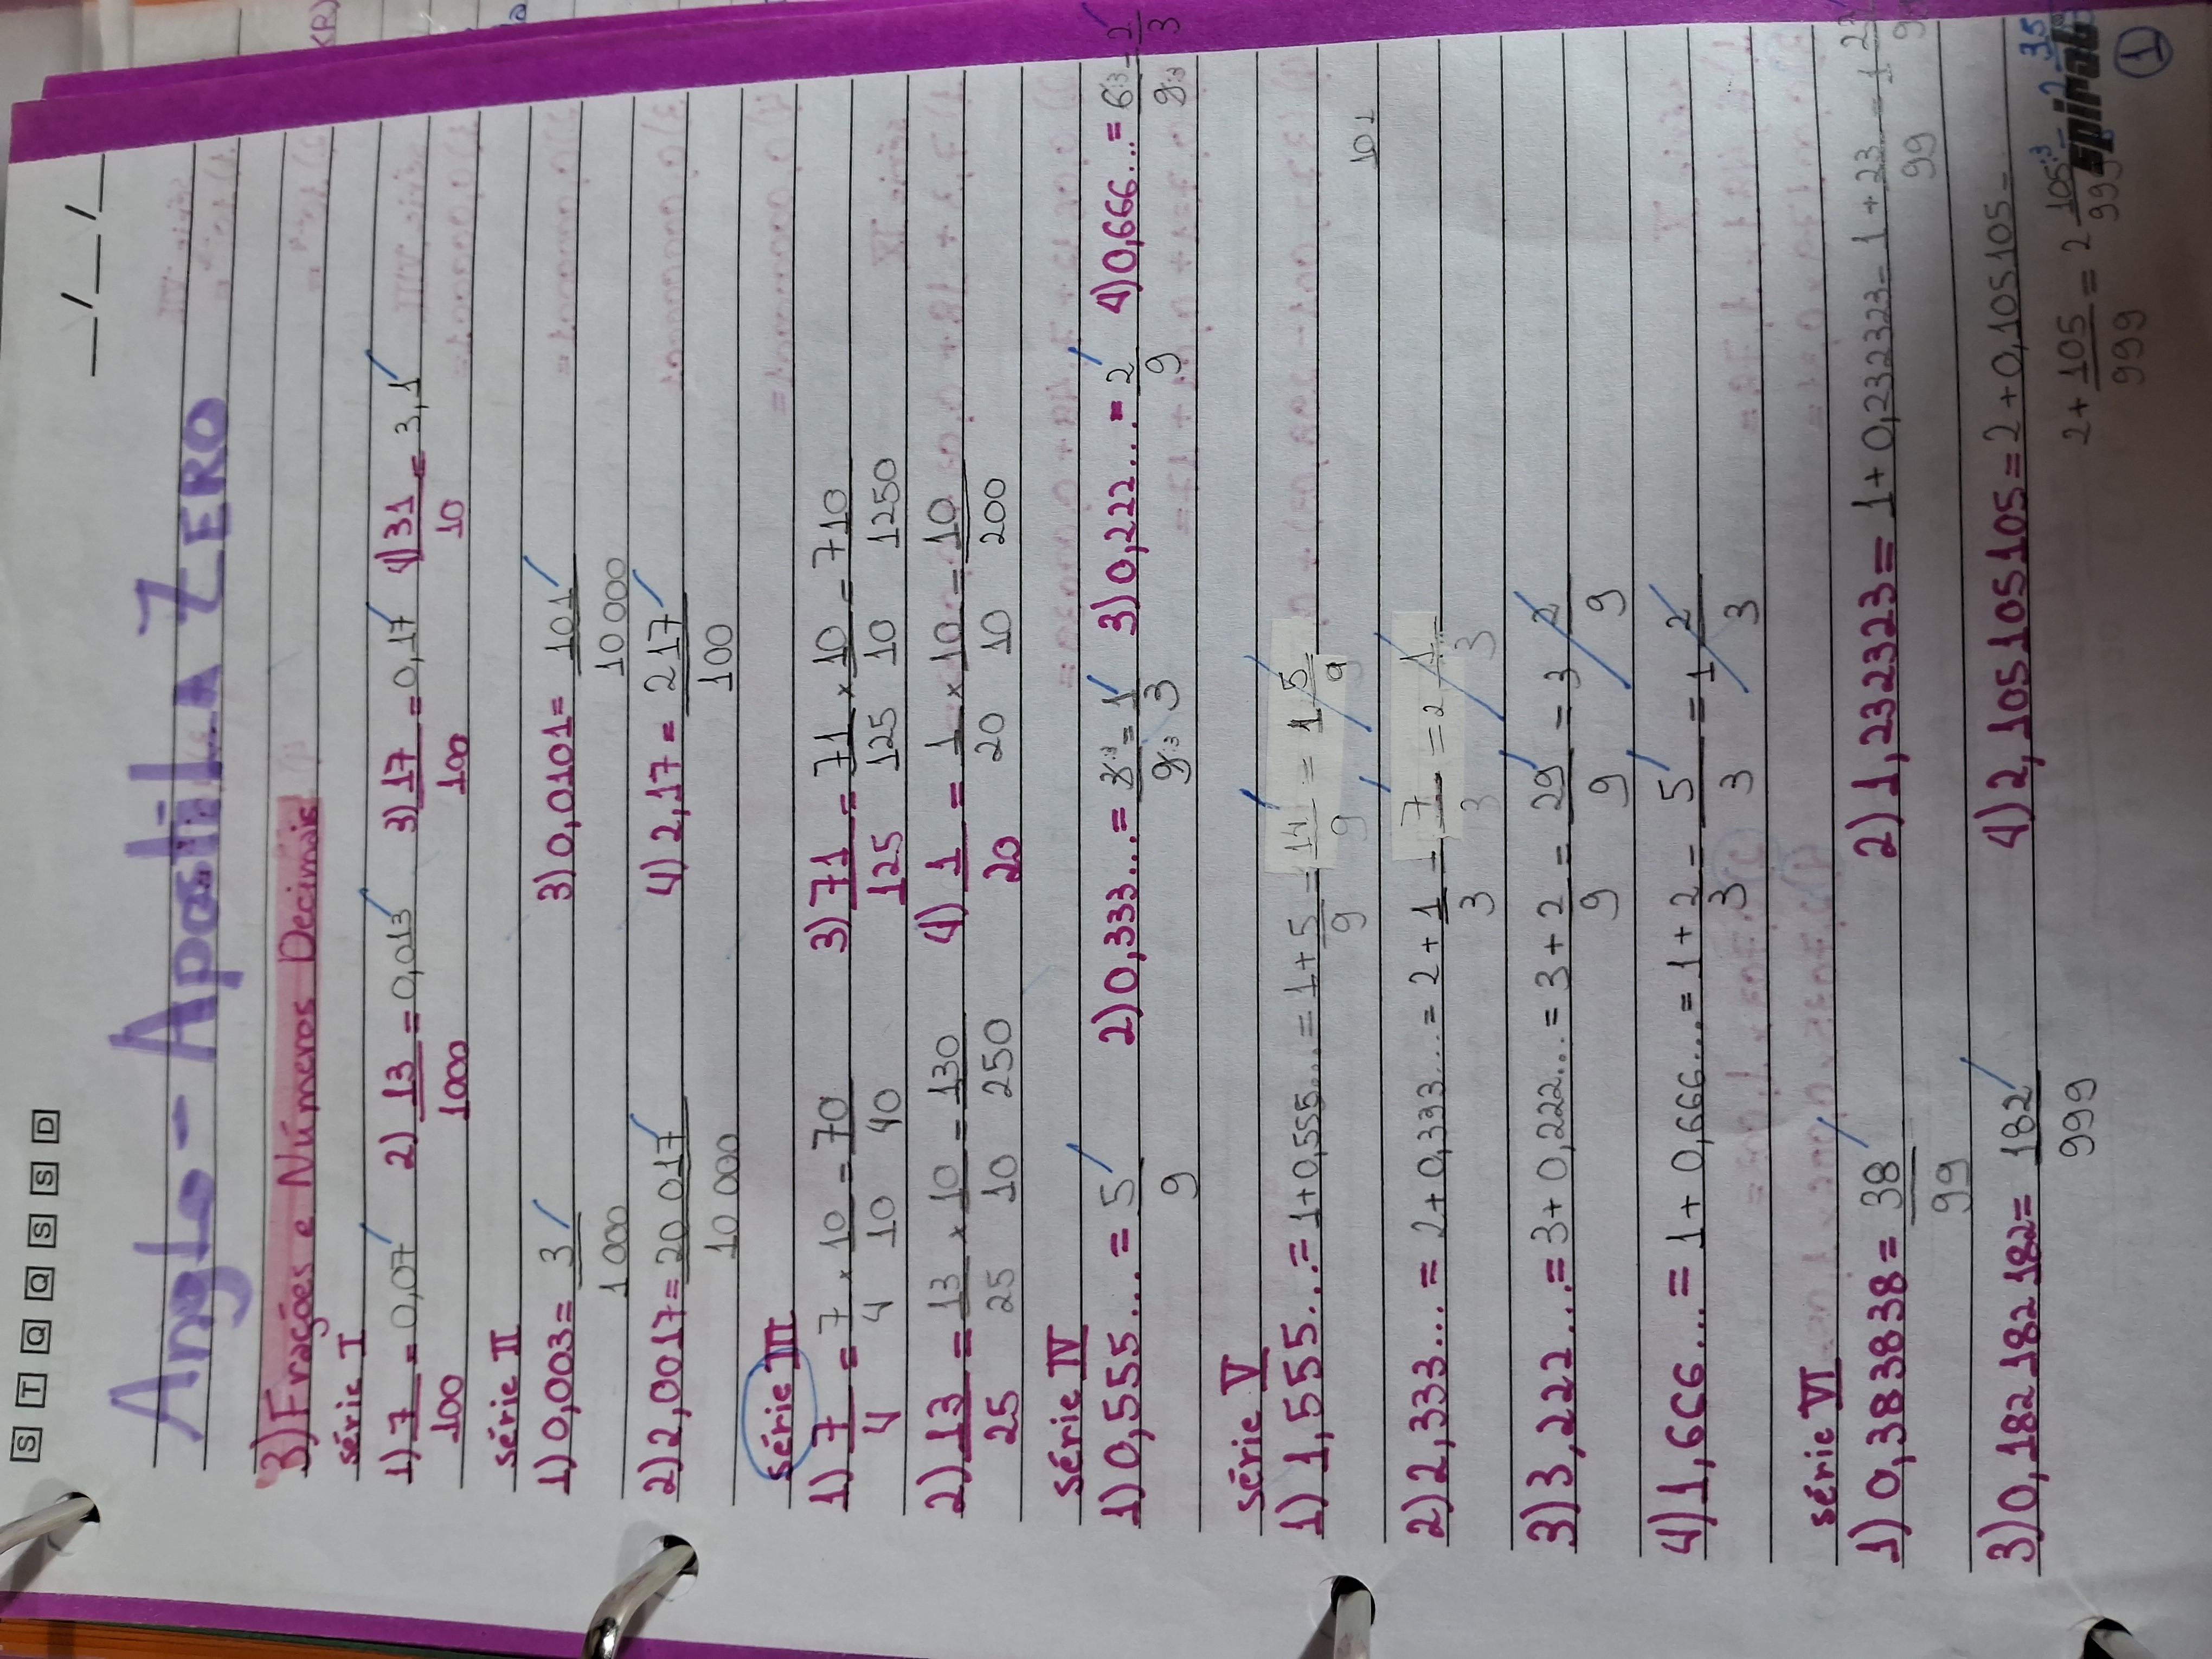 S T Q Q S S D
__/__/__
Anglo - Apostila Zero
3) Frações e Números Decimais
série I
1) 7/100 = 0,07 2) 13/1000 = 0,013 3) 17/100 = 0,17 4) 31/10 = 3,1
série II
1) 0,003 = 3/1 000 3) 0,0101 = 101/10 000
2) 2,0017 = 20 017/10 000 4) 2,17 = 217/100
série III
1) 7/4 = 7/4 × 10/10 = 70/40 3) 71/125 = 71/125 × 10/10 = 710/1250
2) 13/25 = 13/25 × 10/10 = 130/250 4) 1/20 = 1/20 × 10/10 = 10/200
série IV
1) 0,555... = 5/9 2) 0,333... = 3:3/9:3 = 1/3 3) 0,222... = 2/9 4) 0,666... = 6:3/9:3 = 2/3
série V
1) 1,555... = 1 + 0,555... = 1 + 5/9 = 14/9 = 1 5/9
101
2) 2,333... = 2 + 0,333... = 2 + 1/3 = 7/3 = 2 1/3
3) 3,222... = 3 + 0,222... = 3 + 2/9 = 29/9 = 3 2/9
4) 1,666... = 1 + 0,666... = 1 + 2/3 = 5/3 = 1 2/3
série VI
1) 0,383838 = 38/99 2) 1,232323 = 1 + 0,232323 = 1 + 23/99 = 1 23/9
3) 0,182 182 182 = 182/999 4) 2,105 105 105 = 2 + 0,105105 =
2 + 105/999 = 2 105:3/999 = 2 35
spiral
1